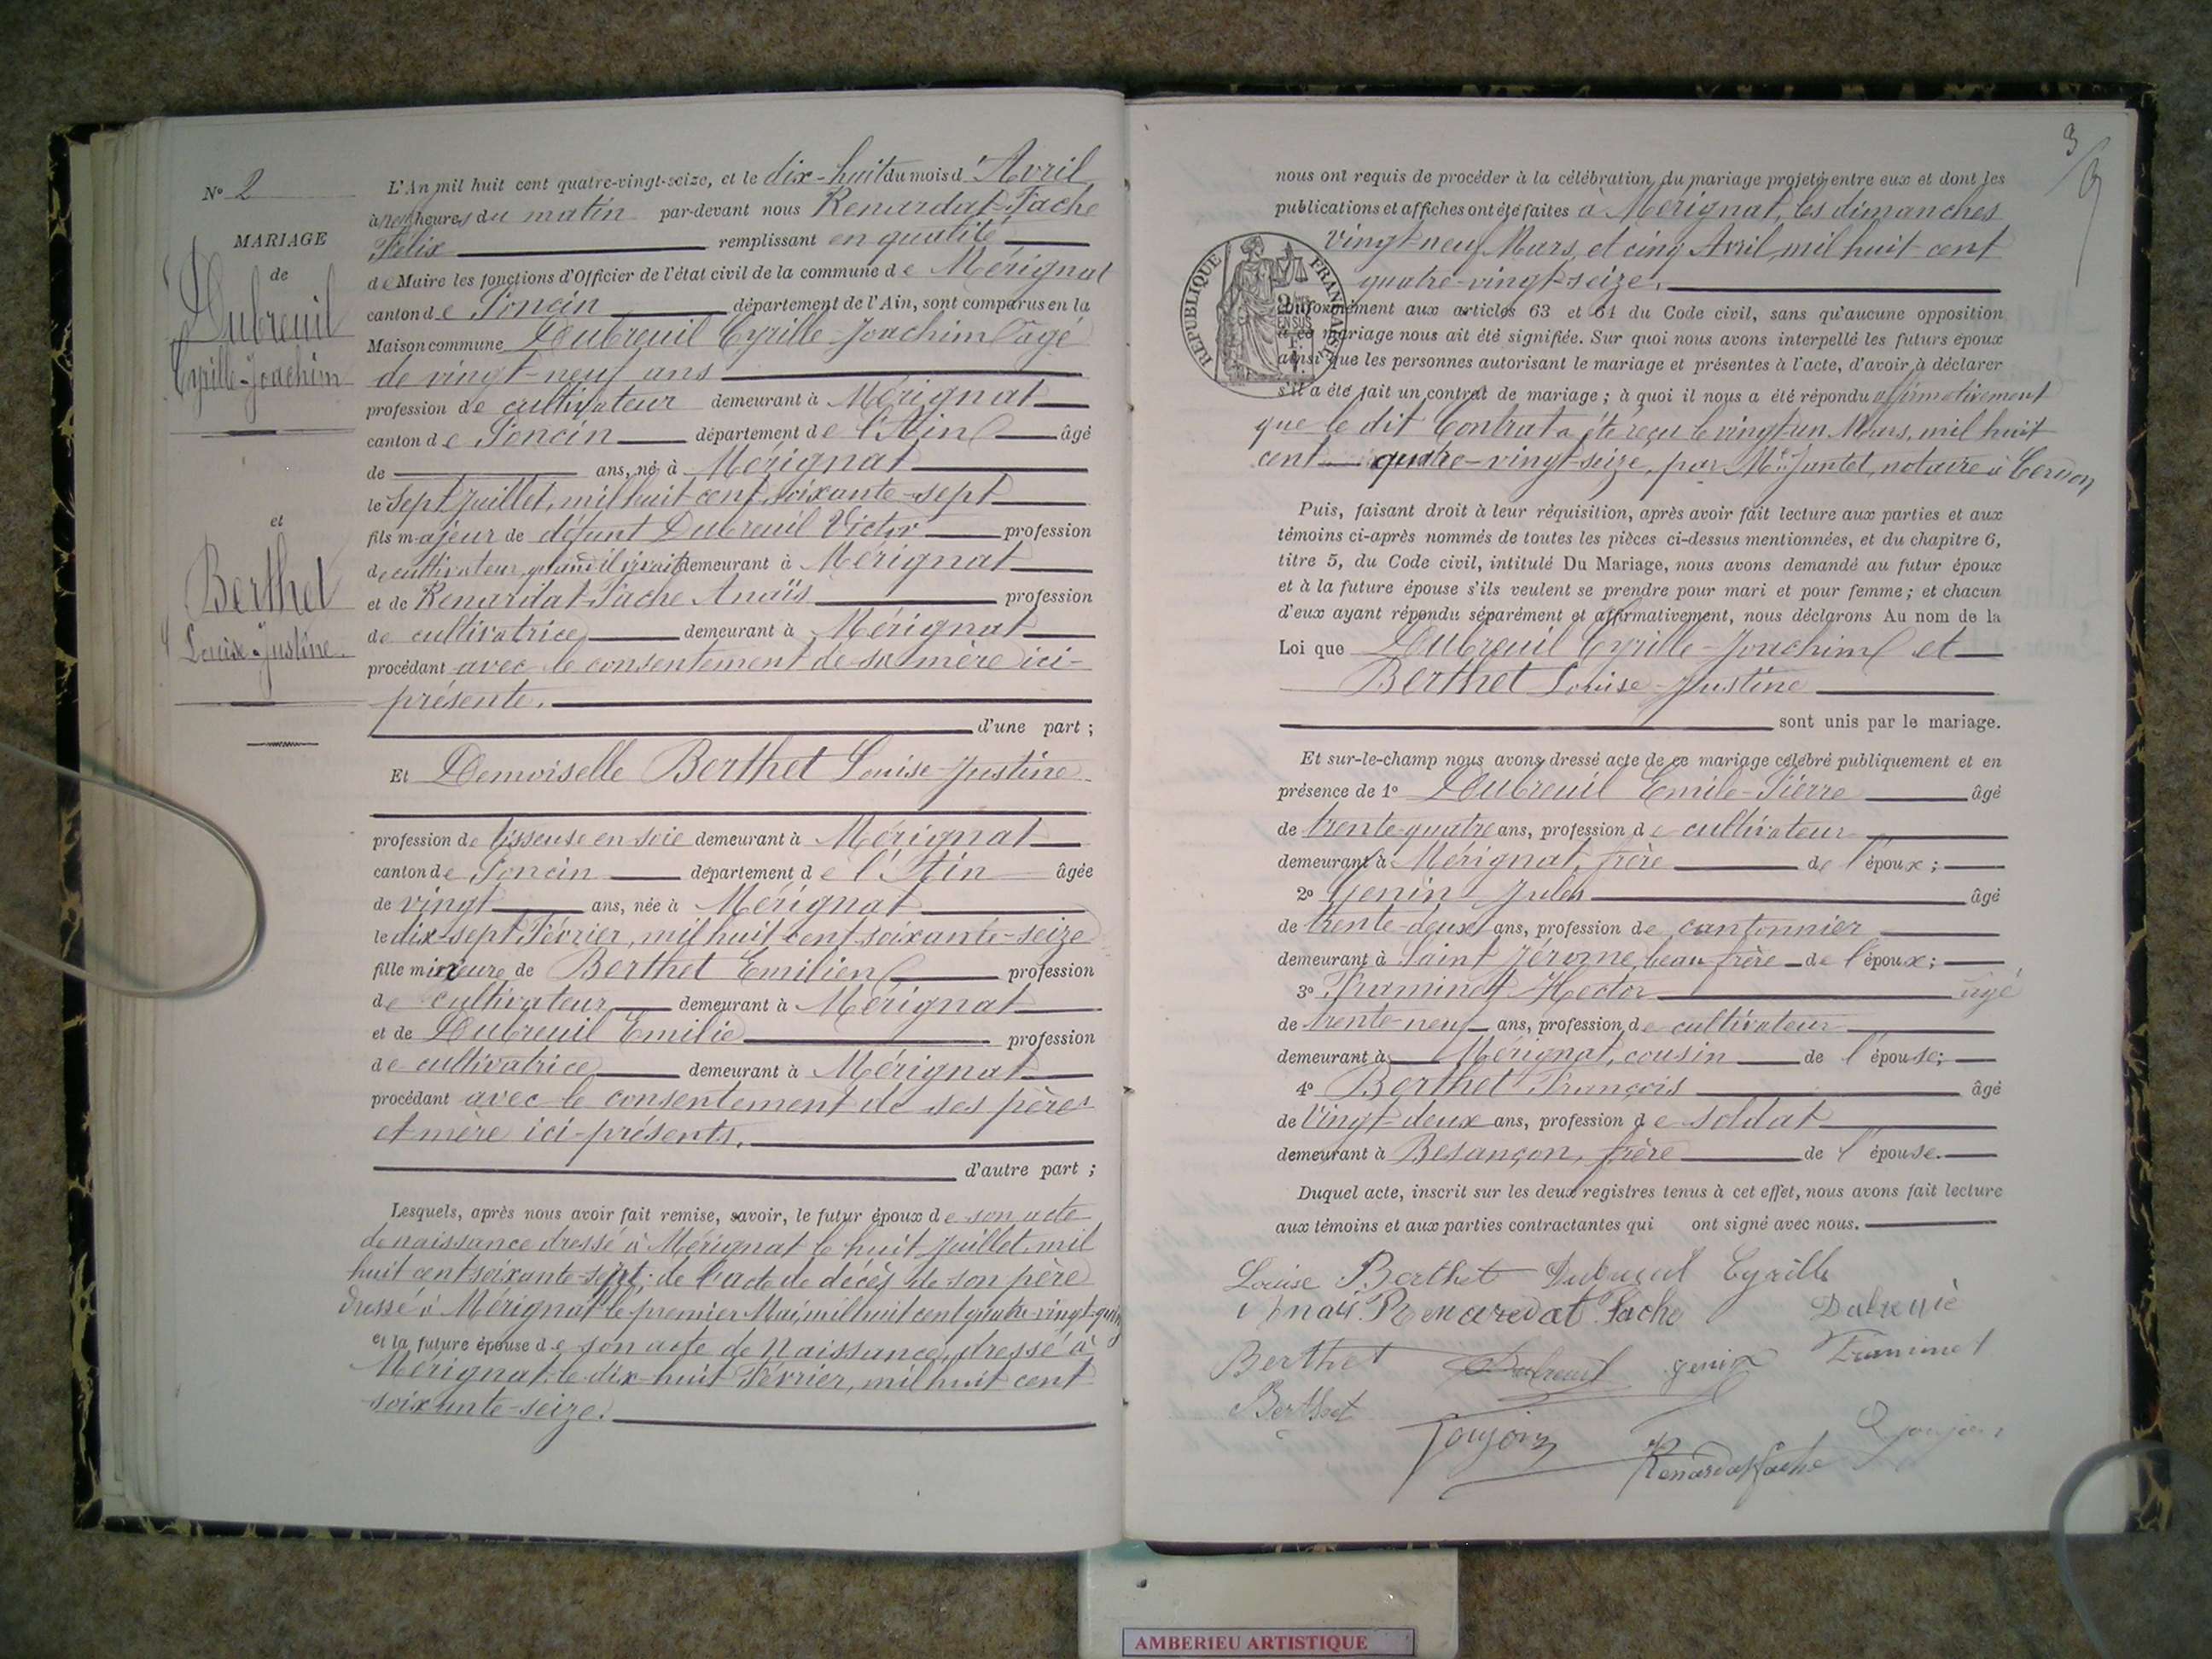 N° 2
MARIAGE
de
Dubreuil
Cyrille-Joachim
et
Berthet
Louise-Justine.
L'An mil huit cent quatre-vingt-seize, et le dix-huit du mois d'Avril
à heures du matin par-devant nous Renardat-Fache
Félix remplissant en qualité
de Maire les fonctions d'Officier de l'état civil de la commune de Mérignat
canton de Poncin département de l'Ain, sont comparus en la
Maison commune Dubreuil Cyrille-Joachim âgé
de vingt-neuf ans
profession de cultivateur demeurant à Mérignat
canton de Poncin département de l'Ain âgé
de ans, né à Mérignat
le Sept Juillet, mil huit cent soixante-sept
fils majeur de défunt Dubreuil Victor profession
de cultivateur, quand il vivait demeurant à Mérignat
et de Renardat-Fache Anaïs profession
de cultivatrice demeurant à Mérignat
procédant avec le consentement de sa mère ici-
présente.
d'une part ;
Et Demoiselle Berthet Louise-Justine
profession de tisseuse en soie demeurant à Mérignat
canton de Poncin département de l'Ain âgée
de vingt ans, née à Mérignat
le dix-sept Février, mil huit cent soixante-seize
fille mineure de Berthet Emilien profession
de cultivateur demeurant à Mérignat
et de Dubreuil Emilie profession
de cultivatrice demeurant à Mérignat
procédant avec le consentement de ses père
et mère ici-présents.
d'autre part ;
Lesquels, après nous avoir fait remise, savoir, le futur époux de son acte
de naissance dressé à Mérignat le huit Juillet, mil
huit cent soixante-sept; de l'acte de décès de son père
dressé à Mérignat le premier Mai, mil huit cent quatre-vingt-
et la future épouse de son acte de naissance, dressé à
Mérignat, le dix-huit Février, mil huit cent
soixante-seize.
3
nous ont requis de procéder à la célébration du mariage projeté entre eux et dont les
publications et affiches ont été faites à Mérignat, les dimanches
vingt-neuf Mars, et cinq Avril, mil huit cent
quatre-vingt-seize.
RÉPUBLIQUE FRANÇAISE
EN SUS
Conformément aux articles 63 et 64 du Code civil, sans qu'aucune opposition
à ce mariage nous ait été signifiée. Sur quoi nous avons interpellé les futurs époux
ainsi que les personnes autorisant le mariage et présentes à l'acte, d'avoir à déclarer
s'il a été fait un contrat de mariage ; à quoi il nous a été répondu affirmativement
que le dit Contrat a été reçu le vingt-un Mars, mil huit
cent quatre-vingt-seize, par Me Jantet, notaire à Cerdon
Puis, faisant droit à leur réquisition, après avoir fait lecture aux parties et aux
témoins ci-après nommés de toutes les pièces ci-dessus mentionnées, et du chapitre 6,
titre 5, du Code civil, intitulé Du Mariage, nous avons demandé au futur époux
et à la future épouse s'ils veulent se prendre pour mari et pour femme ; et chacun
d'eux ayant répondu séparément et affirmativement, nous déclarons Au nom de la
Loi que Dubreuil Cyrille-Joachim et
Berthet Louise-Justine
sont unis par le mariage.
Et sur-le-champ nous avons dressé acte de ce mariage célébré publiquement et en
présence de 1° Dubreuil Emile-Pierre âgé
de trente-quatre ans, profession de cultivateur
demeurant à Mérignat, frère de l'époux ;
2° Genin Jules âgé
de trente-deux ans, profession de cantonnier
demeurant à Saint Jérome, beau frère de l'époux ;
3° Traminet Hector âgé
de trente-neuf ans, profession de cultivateur
demeurant à Mérignat, cousin de l'épouse ;
4° Berthet François âgé
de Vingt-deux ans, profession de soldat
demeurant à Besançon, frère de l'épouse.
Duquel acte, inscrit sur les deux registres tenus à cet effet, nous avons fait lecture
aux témoins et aux parties contractantes qui ont signé avec nous.
Louise Berthet Dubreuil Cyrille
Anais Renardat Fache
Berthet Dubreuil genin Traminet
Berthet Goujon Goujon
Renardat Fache
AMBERIEU ARTISTIQUE